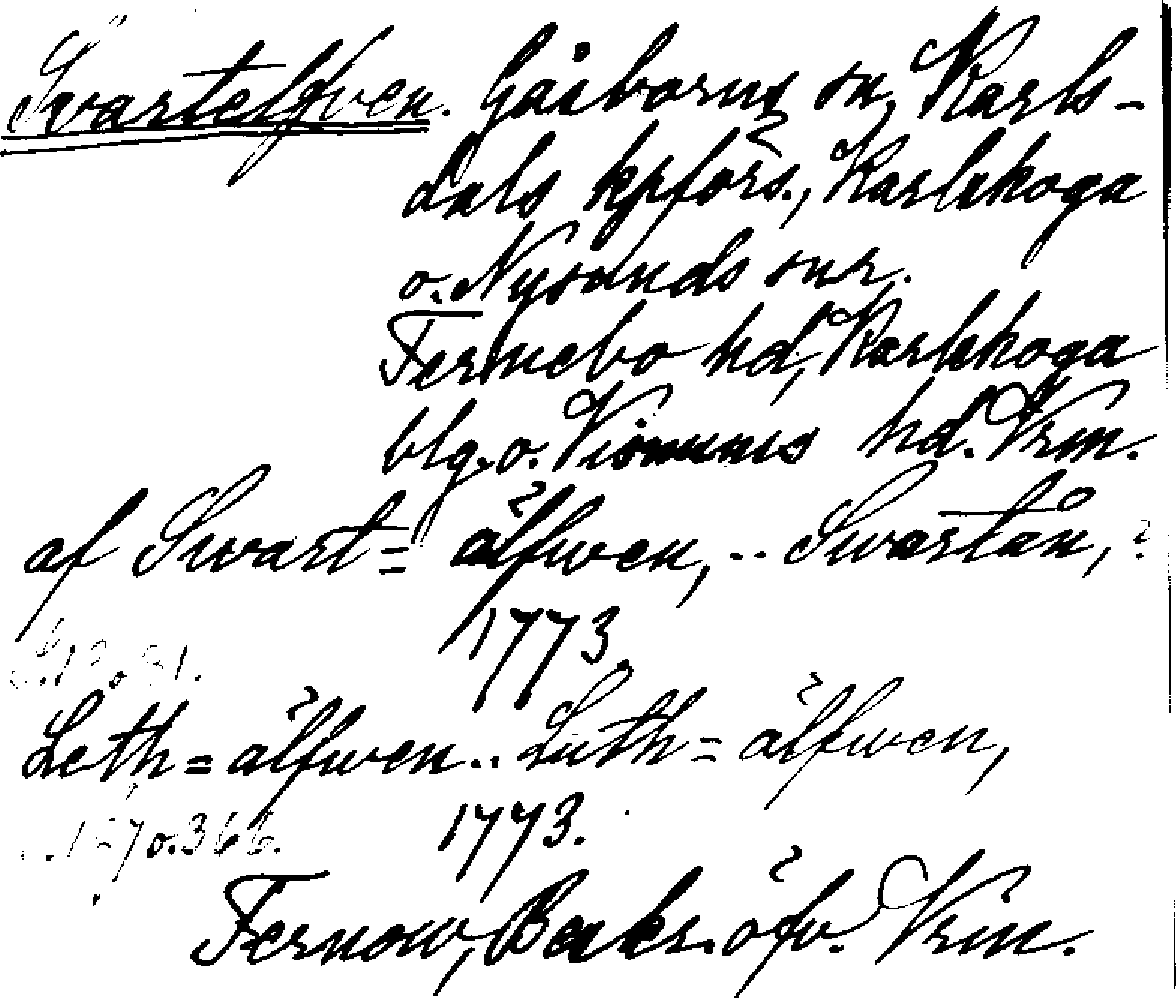 Svartelfven. Gåsborns sn, Karls-
dals kpförs., Karlskoga
o. Nysunds snr.
Fernebo hd, Karlskoga
blg. o. Visnums hd. Vrm.
af Swart= älfwen, .. Swartån,
1773
Leth=älfwen.. Luth=älfwen,
1773.
o.366.
Fernow, Beskr. öfv. Vrm.